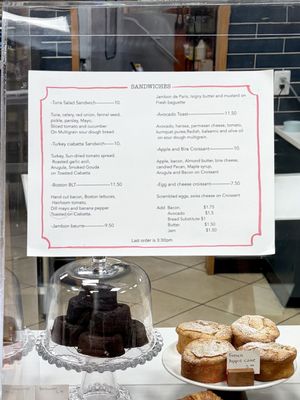 SANDWICHES
-Tuna Salad Sandwich 10.
Tuna, celery, red onion, fennel seed,
pickle, parsley, Mayo.
Sliced tomato and cucumber
On Multigrain sour dough bread.
-Turkey ciabatta Sandwich 10.
Turkey, Sun-dried tomato spread.
Roasted garlic aioli,
Arugula, Smoked Gouda
on Toasted Ciabatta
-Boston BLT 11.50
Hand cut bacon, Boston lettuces,
Heirloom tomato,
Dill mayo and banana pepper
Toasted on Ciabatta.
-Jambon beurre 9.50
Jambon de Paris, Isigny butter and mustard on
Fresh baguette
-Avocado Toast 11.50
Avocado, harissa, parmesan cheese, tomato,
Radish, balsamic and olive oil
on sour dough multigrain.
-Apple and Brie Croissant 10.
Apple, bacon, Almond butter, brie cheese,
candied Pecan, maple syrup,
Arugula and Bacon on Croissant
-Egg and cheese croissant 7.50
Scrambled eggs, swiss cheese on Croissant
Add Bacon $1.75
Avocado $1.5
Bread Substitute $1
Butter $1.50
Jam $1.50
Last order is 3:30pm
French
Apple Cake